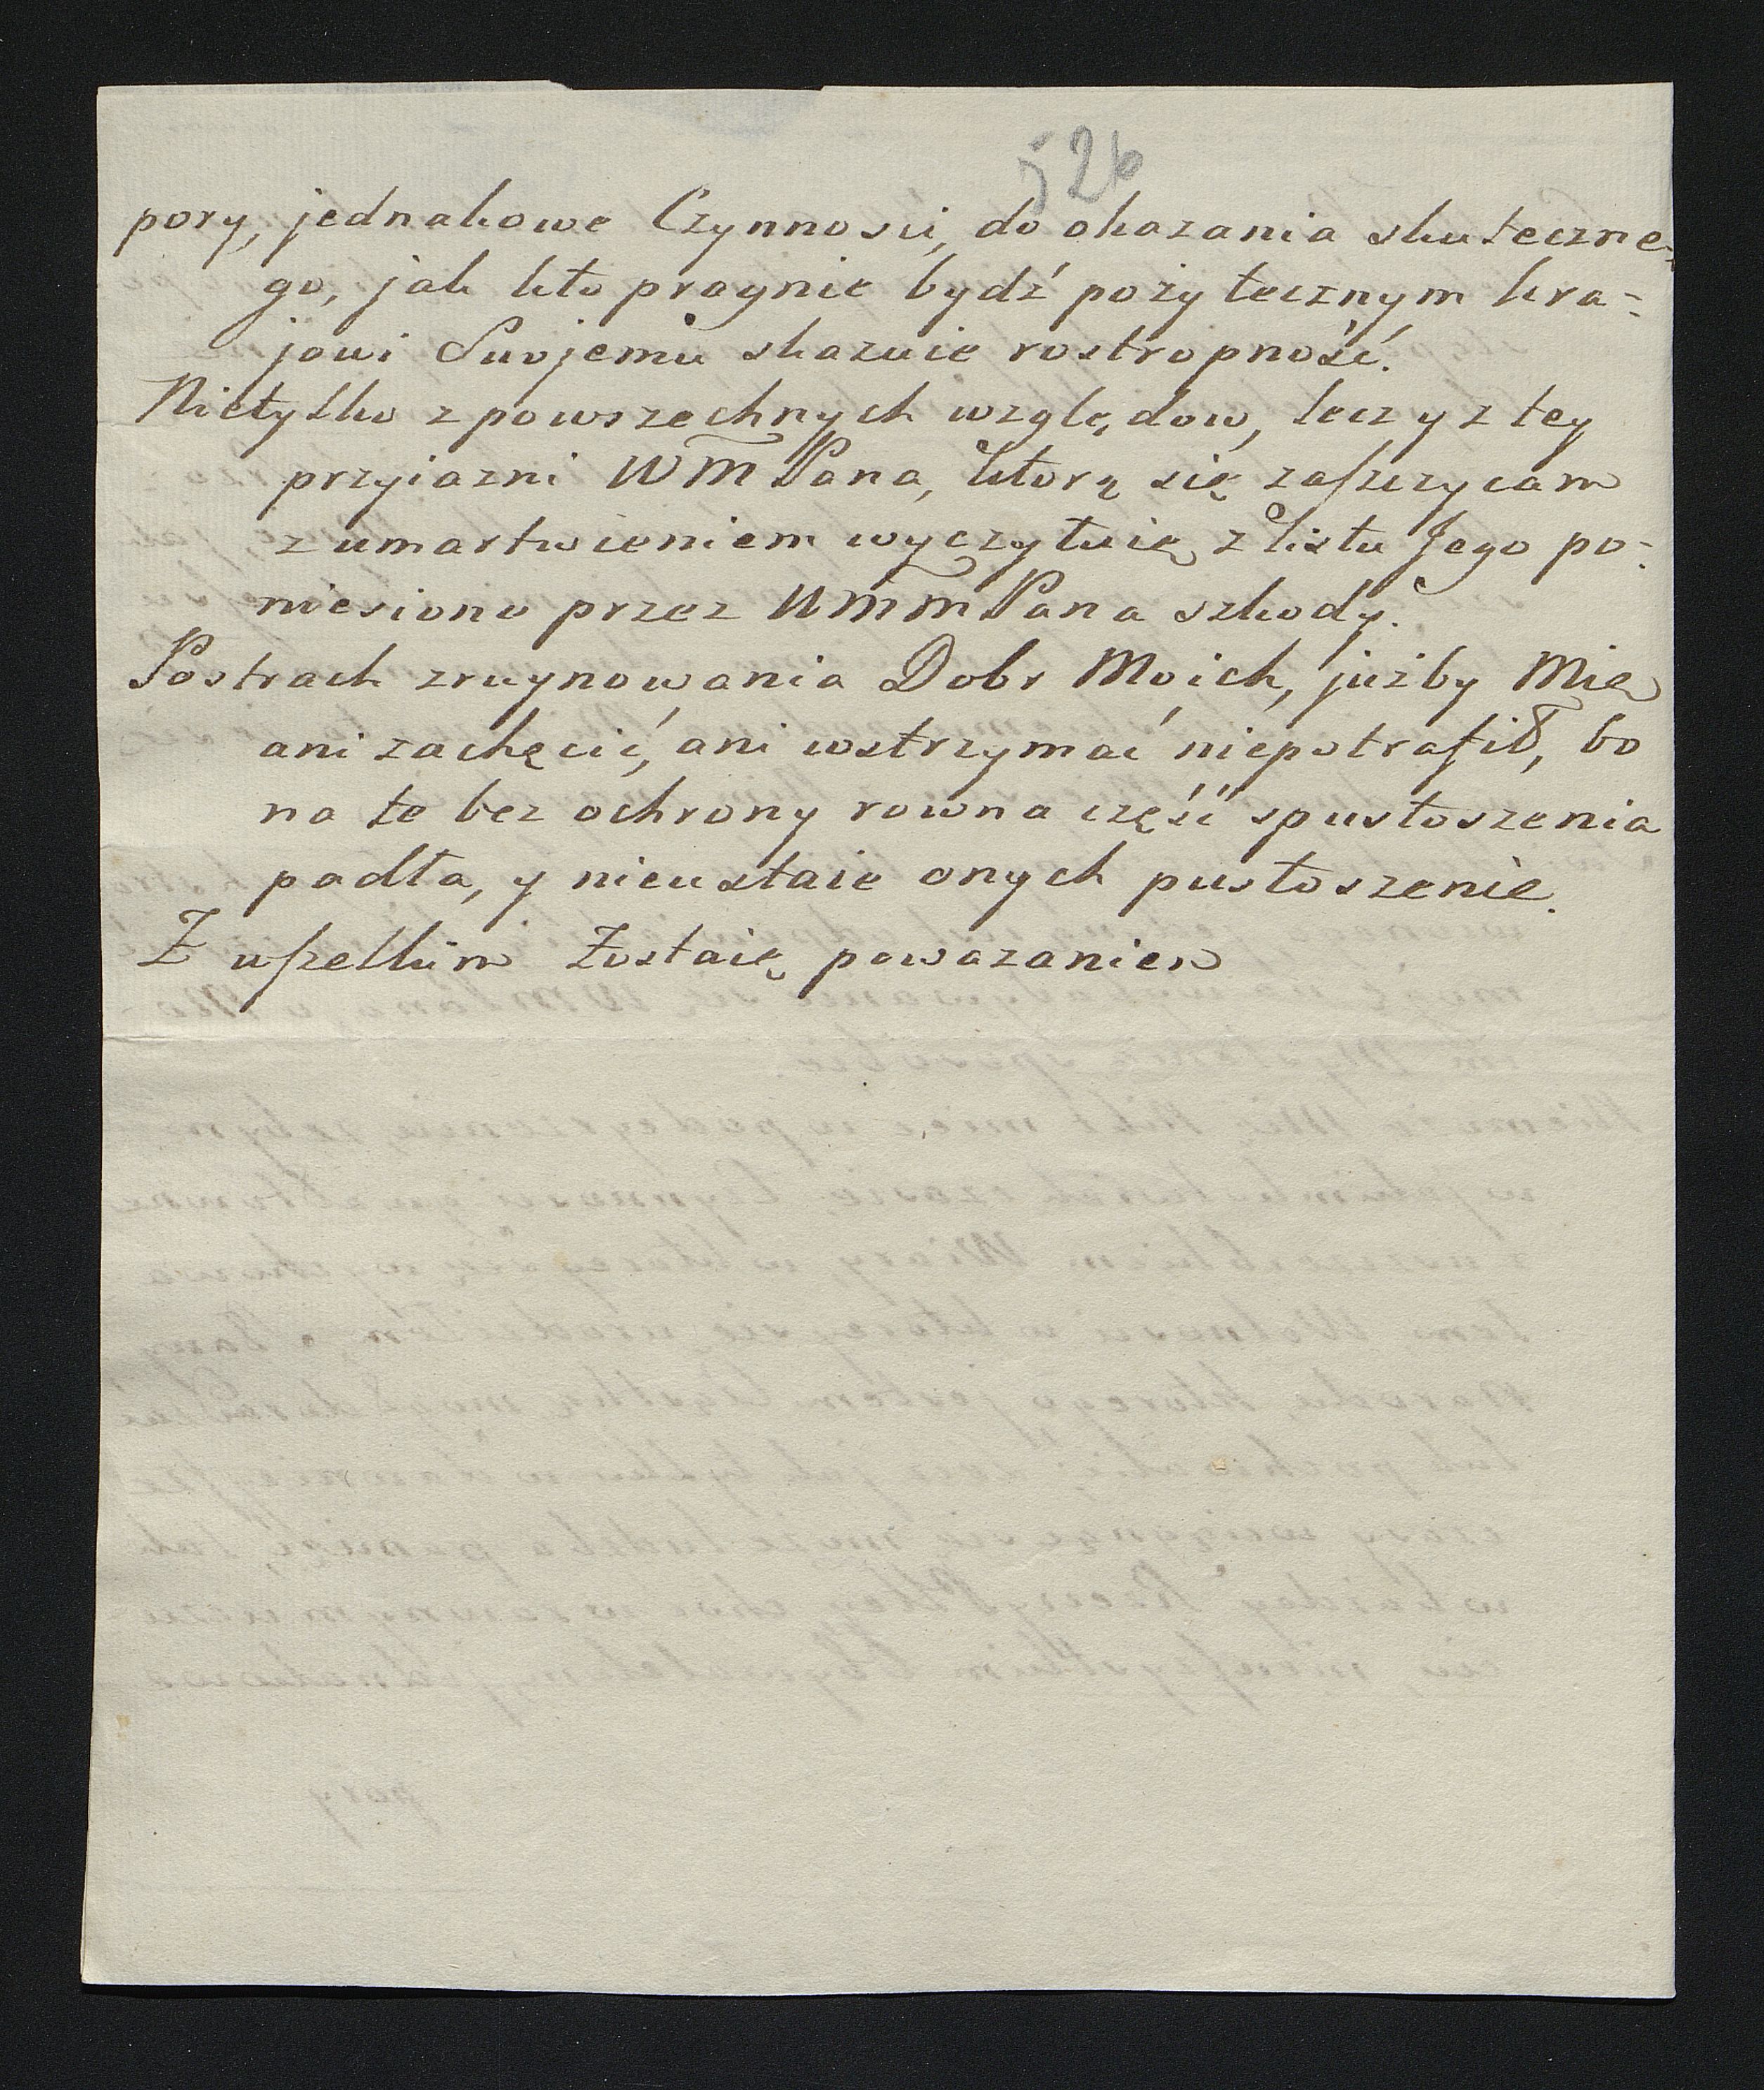 526
pory, jednakowe Czynnosci, do okazania skuteczne-
go, jak kto pragnie bydź pożytecznym kra-
jowi Swojemu skazuie rostropność.
Nietylko z powszechnych względow, lecz y z tey
przyiazni WM Pana, ktorą się zaszczycam
z umartwieniem wyczytuię z listu Jego po-
niesione przez WMm Pana szkody.
Postrach zruynowania Dobr Moich, jużby Mię
ani zachęcić, ani wstrzymać niepotrafił, bo
na te bez ochrony rowna część spustoszenia
padła, y nieustaie onych pustoszenie.
Z wszelkim Zostaię powazaniem